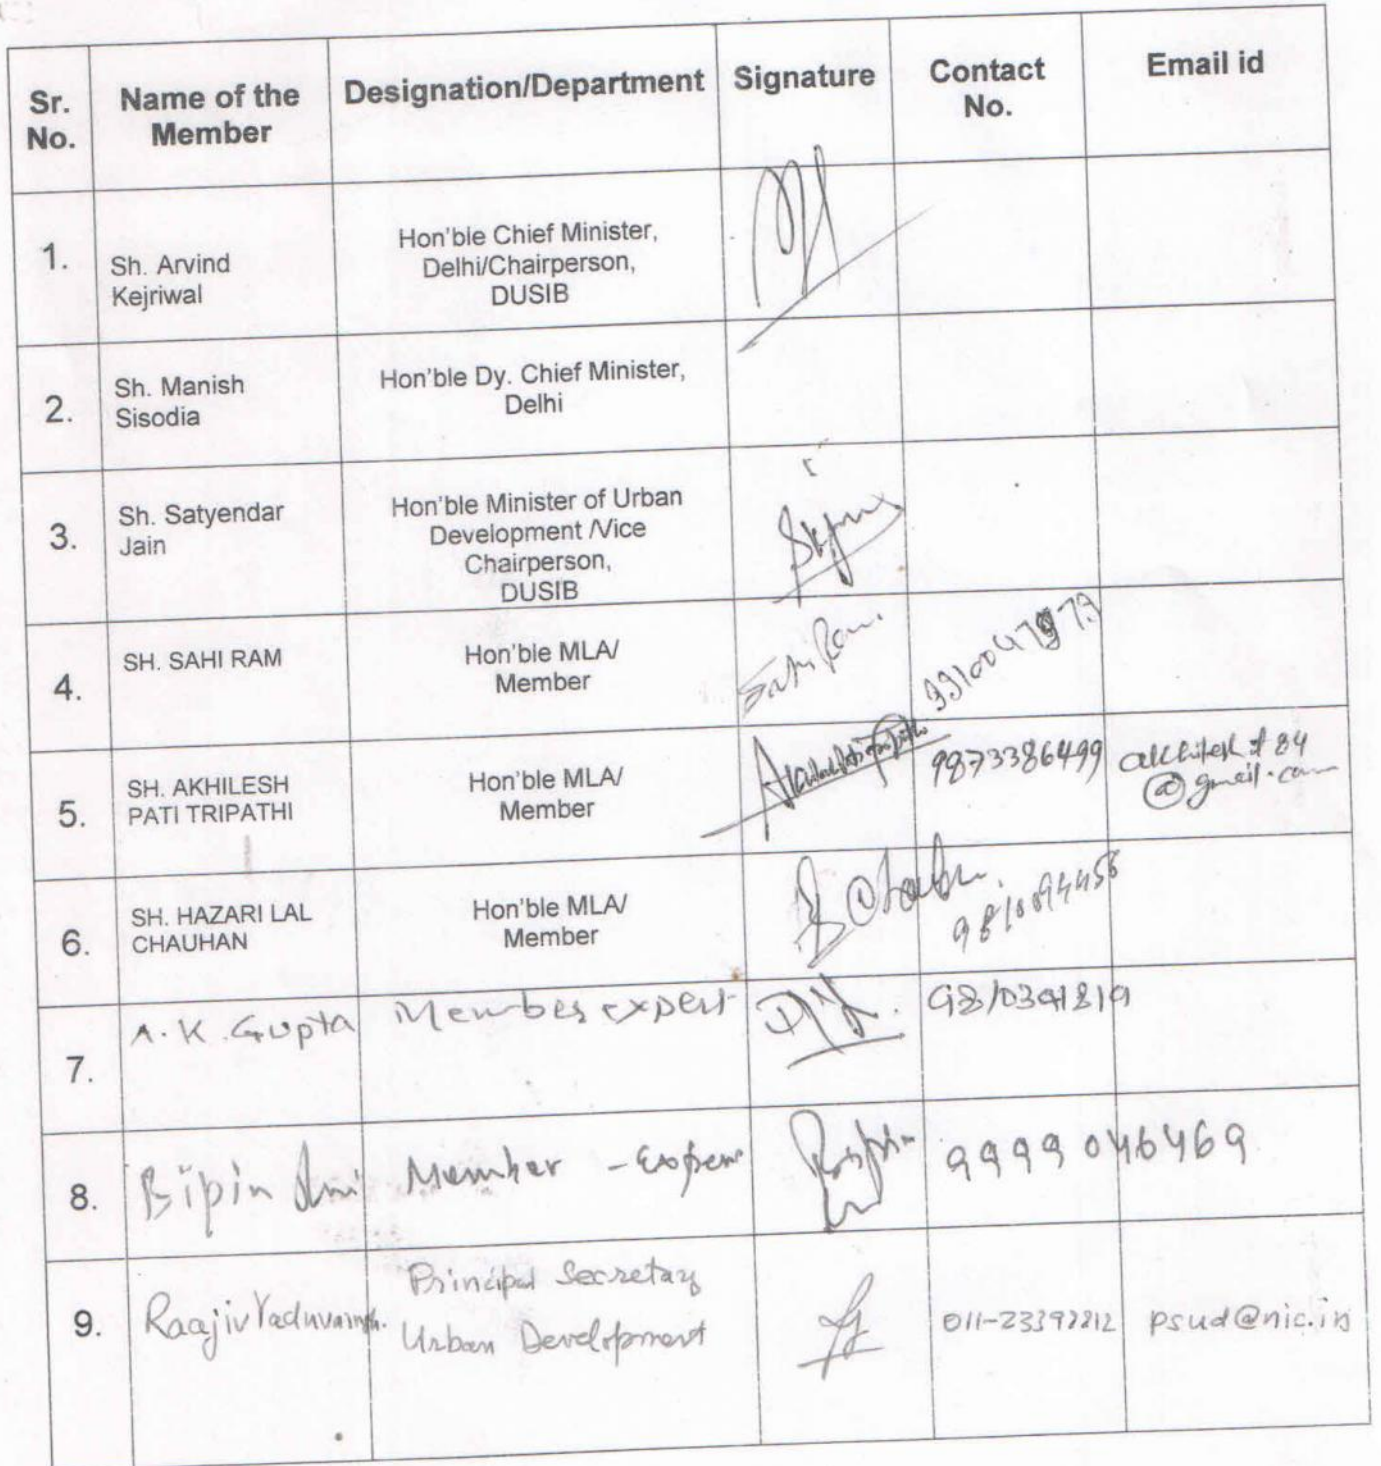 Sr. No.
Name of the Member
Designation/Department
Signature
Contact No.
Email id
1.
Sh. Arvind
Kejriwal
Hon'ble Chief Minister,
Delhi/Chairperson,
DUSIB
2.
Sh. Manish
Sisodia
Hon'ble Dy. Chief Minister,
Delhi
3.
Sh. Satyendar
Jain
Hon'ble Minister of Urban
Development /Vice
Chairperson,
DUSIB
4.
SH. SAHI RAM
Hon'ble MLA/
Member
Sahi Ram.
5.
SH. AKHILESH
PATI TRIPATHI
Hon'ble MLA/
Member
9873386499
@gmail.com
6.
SH. HAZARI LAL
CHAUHAN
Hon'ble MLA/
Member
7.
A.K. Gupta
Member expert
9810391819
8.
Bipin
Member -
9999046469
9.
Raajiv
Principal Secretary
Urban Development
psud@nic.in